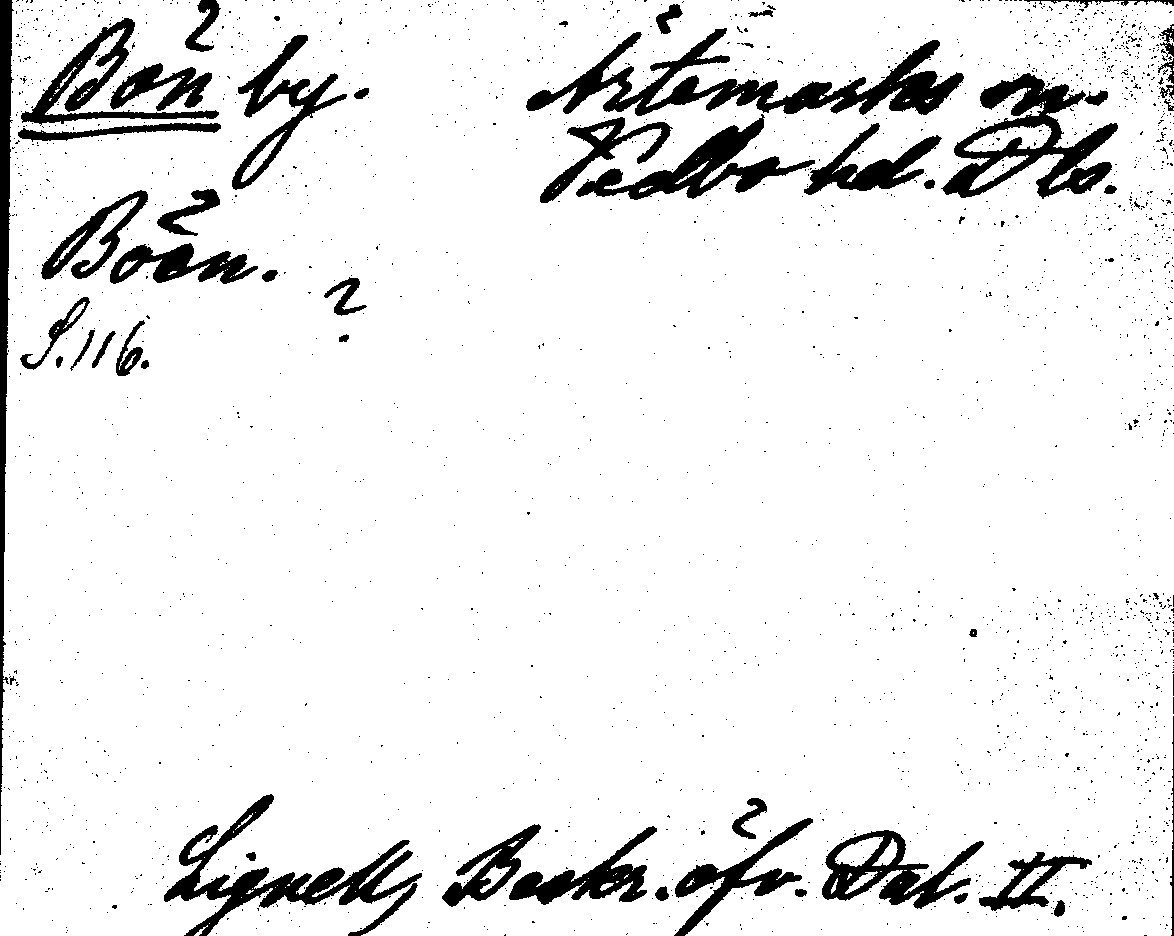 Bön by. Ärtemarks sn.
Vedbo hd. Dls.
Böen.
?
S. 116.
Lignell, Beskr. öfv. Dal. II.